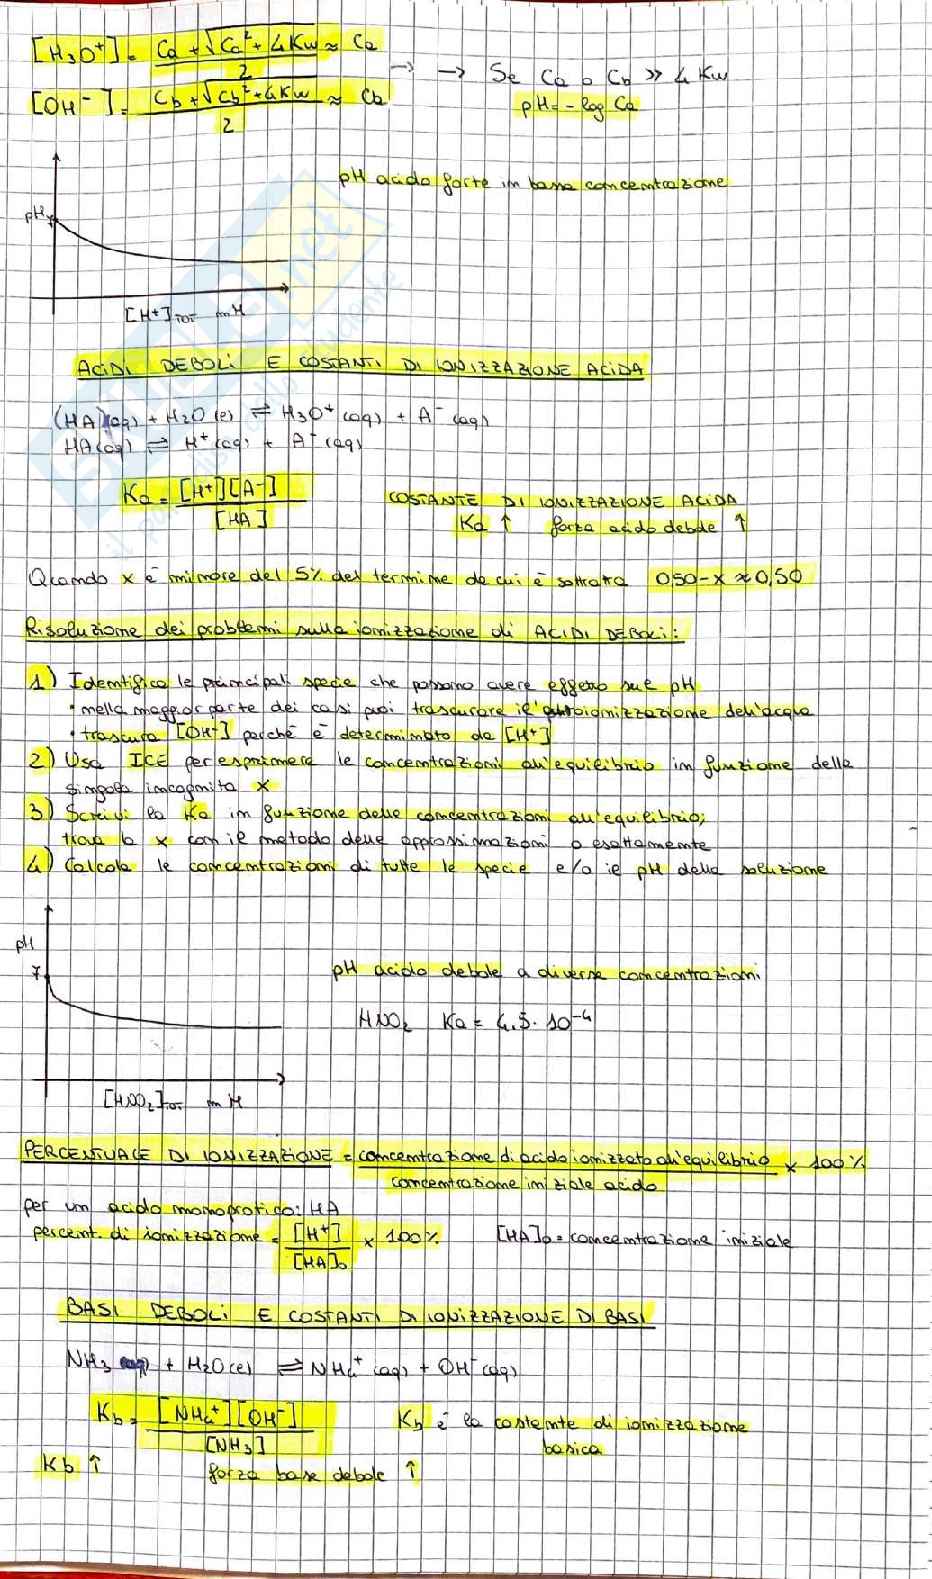 [H₃O⁺] = Ca + √Ca² + 4Kw / 2 ≈ Ca
[OH⁻] = Cb + √Cb² + 4Kw / 2 ≈ Cb
→ → Se Ca o Cb >> 4 Kw
pH = - log Ca
pH acido forte in bassa concentrazione
pH
7
[H⁺]TOT in M
ACIDI DEBOLI E COSTANTI DI IONIZZAZIONE ACIDA
(HA)(aq) + H₂O (l) ⇌ H₃O⁺ (aq) + A⁻ (aq)
HA(aq) ⇌ H⁺(aq) + A⁻(aq)
Ka = [H⁺][A⁻] / [HA]
COSTANTE DI IONIZZAZIONE ACIDA
Ka ↑ forza acido debole ↑
Quando x è minore del 5% del termine da cui è sottratta 0,50-x ≈ 0,50
Risoluzione dei problemi sulla ionizzazione di ACIDI DEBOLI:
1) Identifica le principali specie che possono avere effetto sul pH
• nella maggior parte dei casi puoi trascurare l'autoionizzazione dell'acqua
• trascura [OH⁻] perché è determinato da [H⁺]
2) Usa ICE per esprimere le concentrazioni all'equilibrio in funzione della
singola incognita x
3) Scrivi la Ka in funzione delle concentrazioni all'equilibrio;
trova la x con il metodo delle approssimazioni o esattamente
4) Calcola le concentrazioni di tutte le specie e/o il pH della soluzione
pH
7
pH acido debole a diverse concentrazioni
HNO₂ Ka = 4.5 · 10⁻⁴
[HNO₂]TOT in M
PERCENTUALE DI IONIZZAZIONE = concentrazione di acido ionizzato all'equilibrio / concentrazione iniziale acido × 100%
per un acido monoprotico: HA
percent. di ionizzazione = [H⁺] / [HA]₀ × 100% [HA]₀ = concentrazione iniziale
BASI DEBOLI E COSTANTI DI IONIZZAZIONE DI BASI
NH₃ (aq) + H₂O(l) ⇌ NH₄⁺ (aq) + OH⁻(aq)
Kb = [NH₄⁺][OH⁻] / [NH₃]
Kb è la costante di ionizzazione
basica
Kb ↑ forza base debole ↑